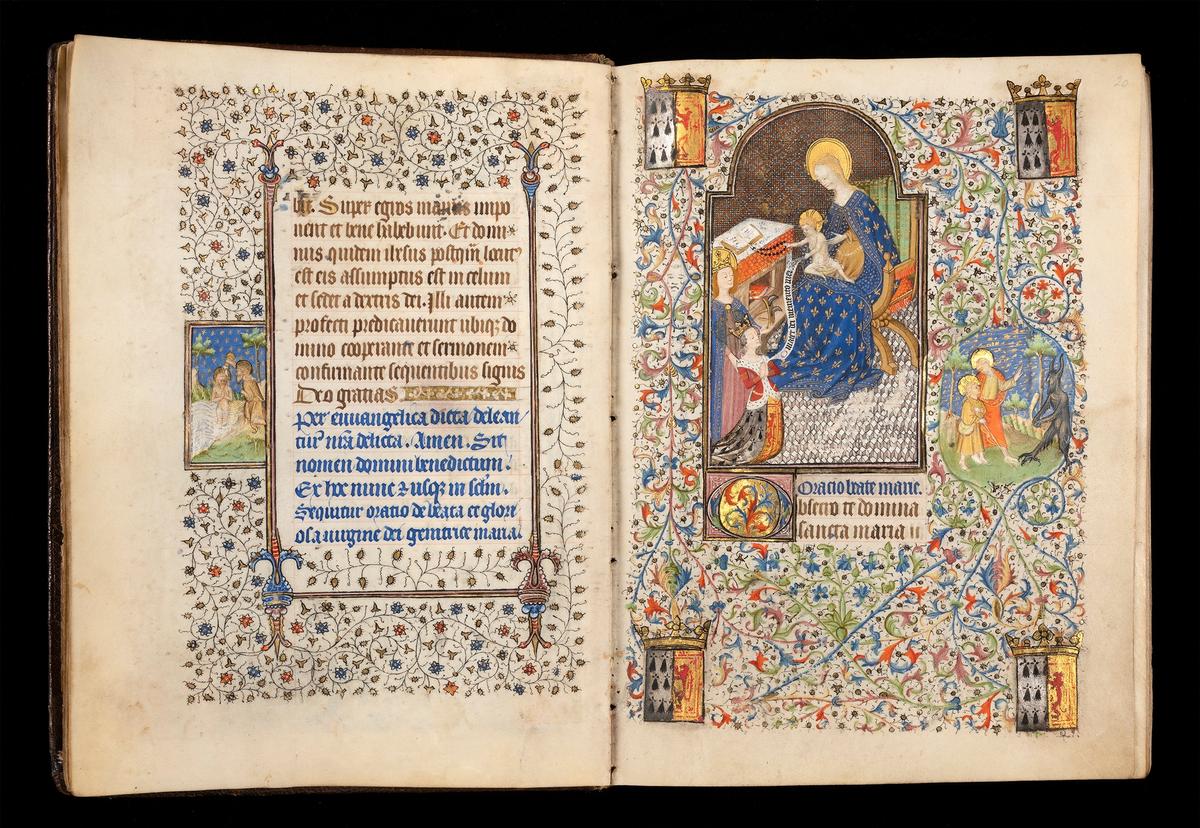 bit. Super egros manus impo
nent et bene habebunt. Et domi
nus quidem ihesus postqm̄ locutꝰ
est eis assumptus est in celum
et sedet a dextris dei. Illi autem
profecti predicauerunt ubiqꝫ do
mino cooperante et sermonem
confirmante sequentibus signis
Deo gratias
Per euuangelica dicta delean
tur nr̄a delicta. Amen. Sit
nomen domini benedictum.
Ex hoc nunc ⁊ usqꝫ in sclm̄.
Sequitur oratio de beata et glori
osa uirgine dei genitrice maria.
20
O mater dei memento mei
Oracio beate marie.
Obsecro te domina
sancta maria